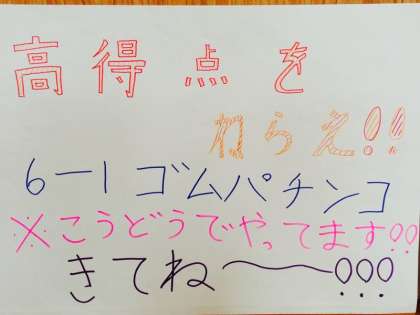 高得点を
ねらえ!!
6-1 ゴムパチンコ
※こうどうでやってます!!
きてね〜!!!